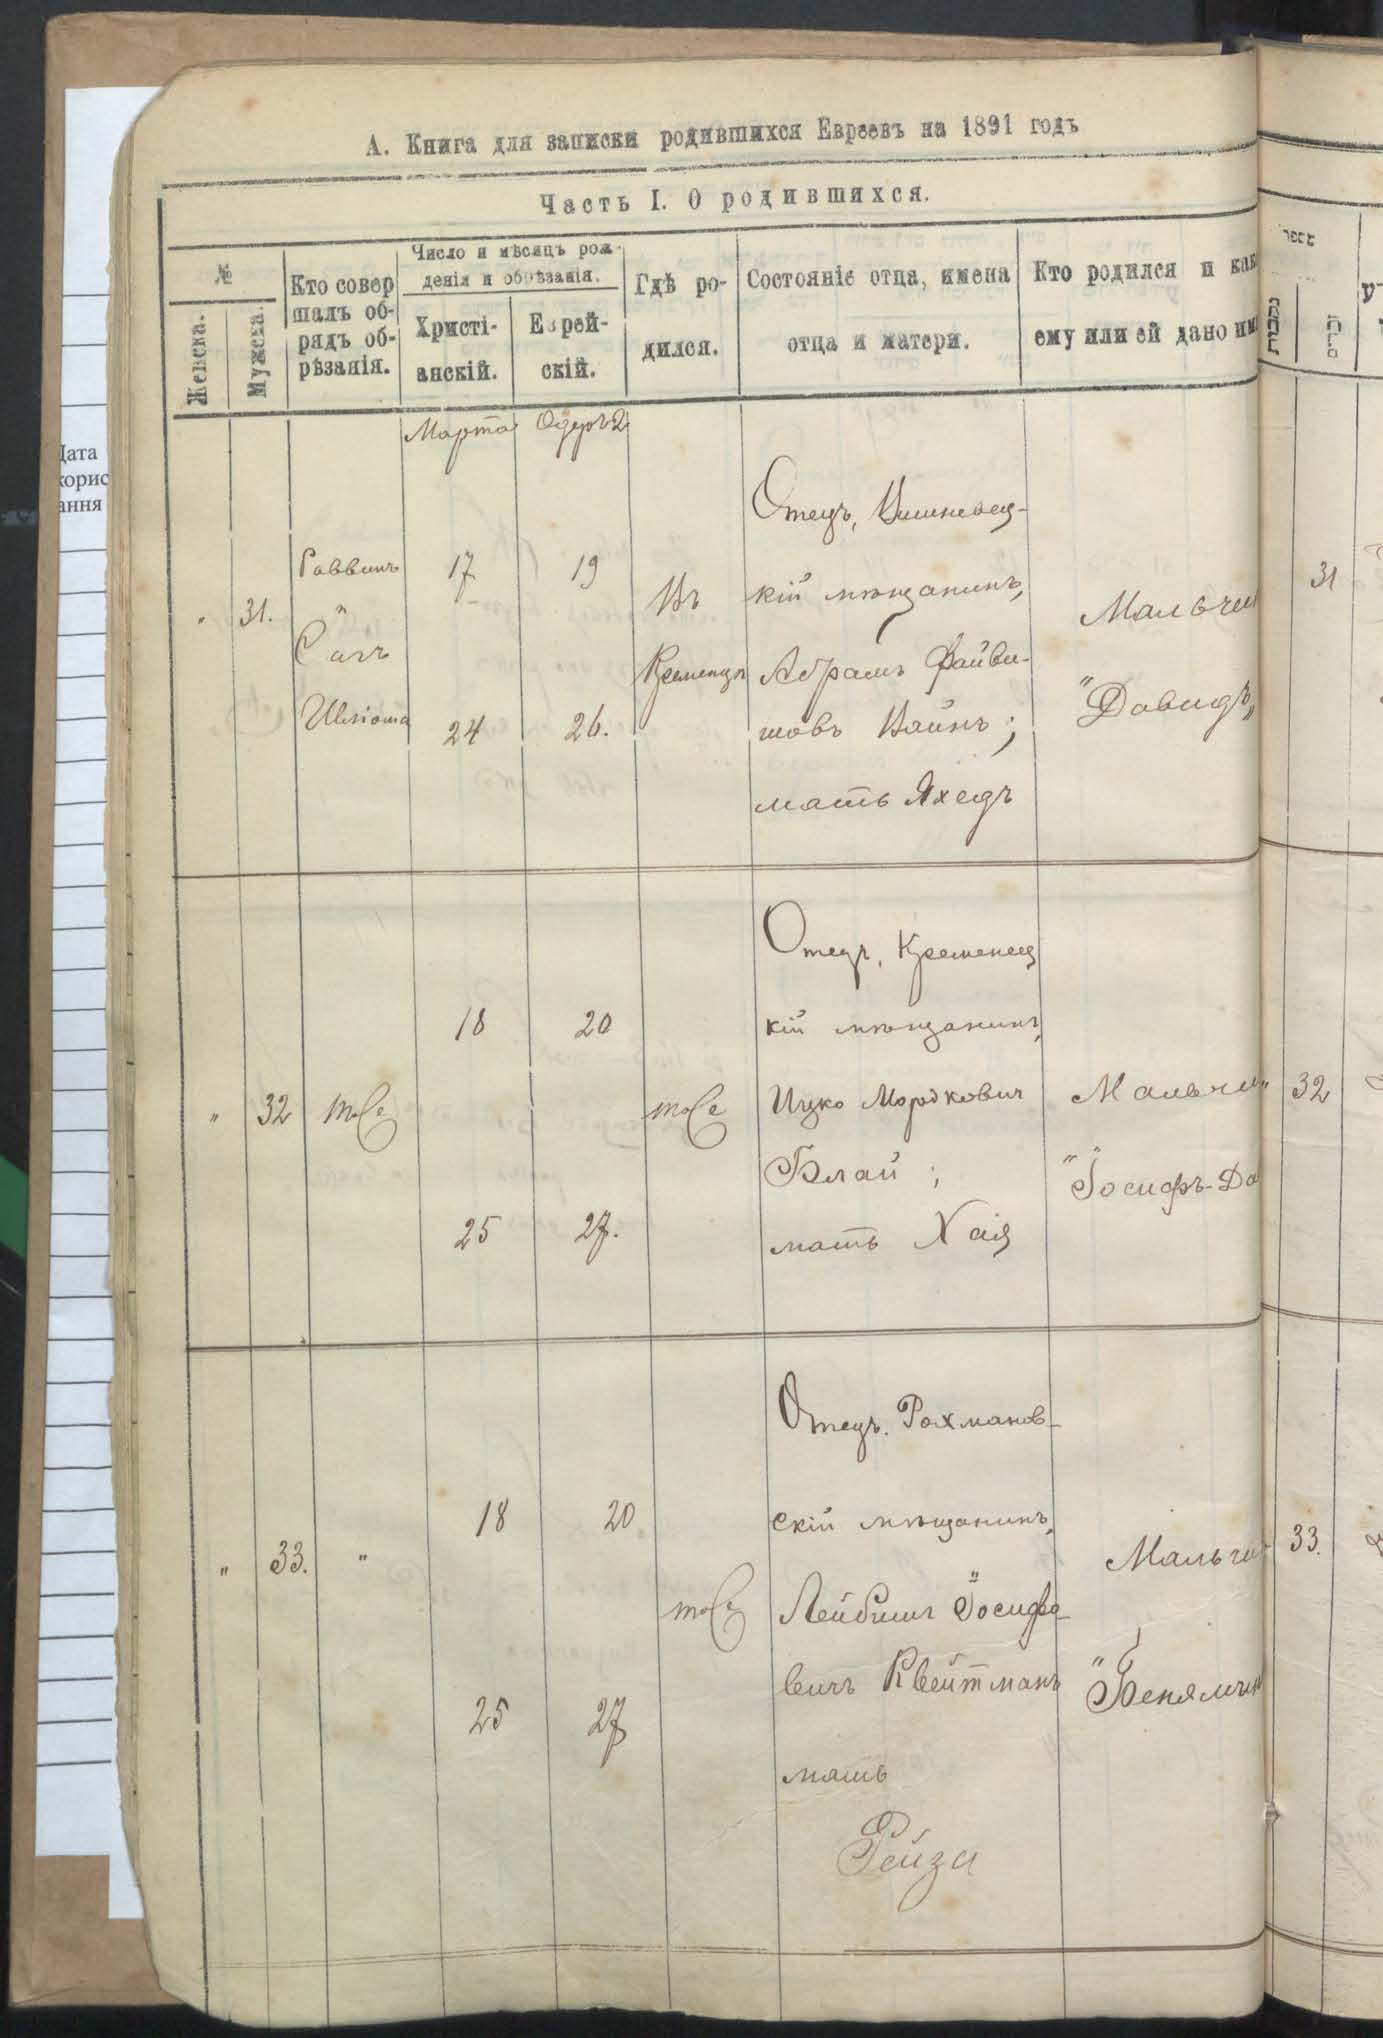 А. Книга для записки родившихся Евреевъ на 1891 годъ
Часть I. О родившихся.
№
Женска.
Мужска.
Кто совер
шалъ об-
рядъ об-
рѣзанія.
Число и мѣсяцъ рож-
денія и обрѣзанія.
Христі-
анскій.
Еврей-
скій.
Гдѣ ро-
дился.
Состояніе отца, имена
отца и матери.
Кто родился и как
ему или ей дано им
נקבות
זכרים
Дата
корис
ання
Марта
Одеръ 2
" 31.
Раввинъ
"
Шліома
17
19
24
26.
Въ
Кременцѣ
Отецъ, Вишневец-
кій мѣщанинъ,
Абрамъ Файви-
шовъ Вайнъ;
мать Яхедъ
Мальчи
"Давидъ"
31
" 32
тоже
18
20
25
27.
тоже
Отецъ, Кременец
кій мѣщанинъ,
Ицко Мордкович
Блай;
мать Хаія
Мальчи
"Іосифъ-Да
" 32
" 33.
"
18
20
25
27
тоже
Отецъ. Рохманов-
скій мѣщанинъ,
Лейбишъ Іосифо-
вичъ Квейтманъ
мать
Рейза
Мальчи
"Бенямин
33.